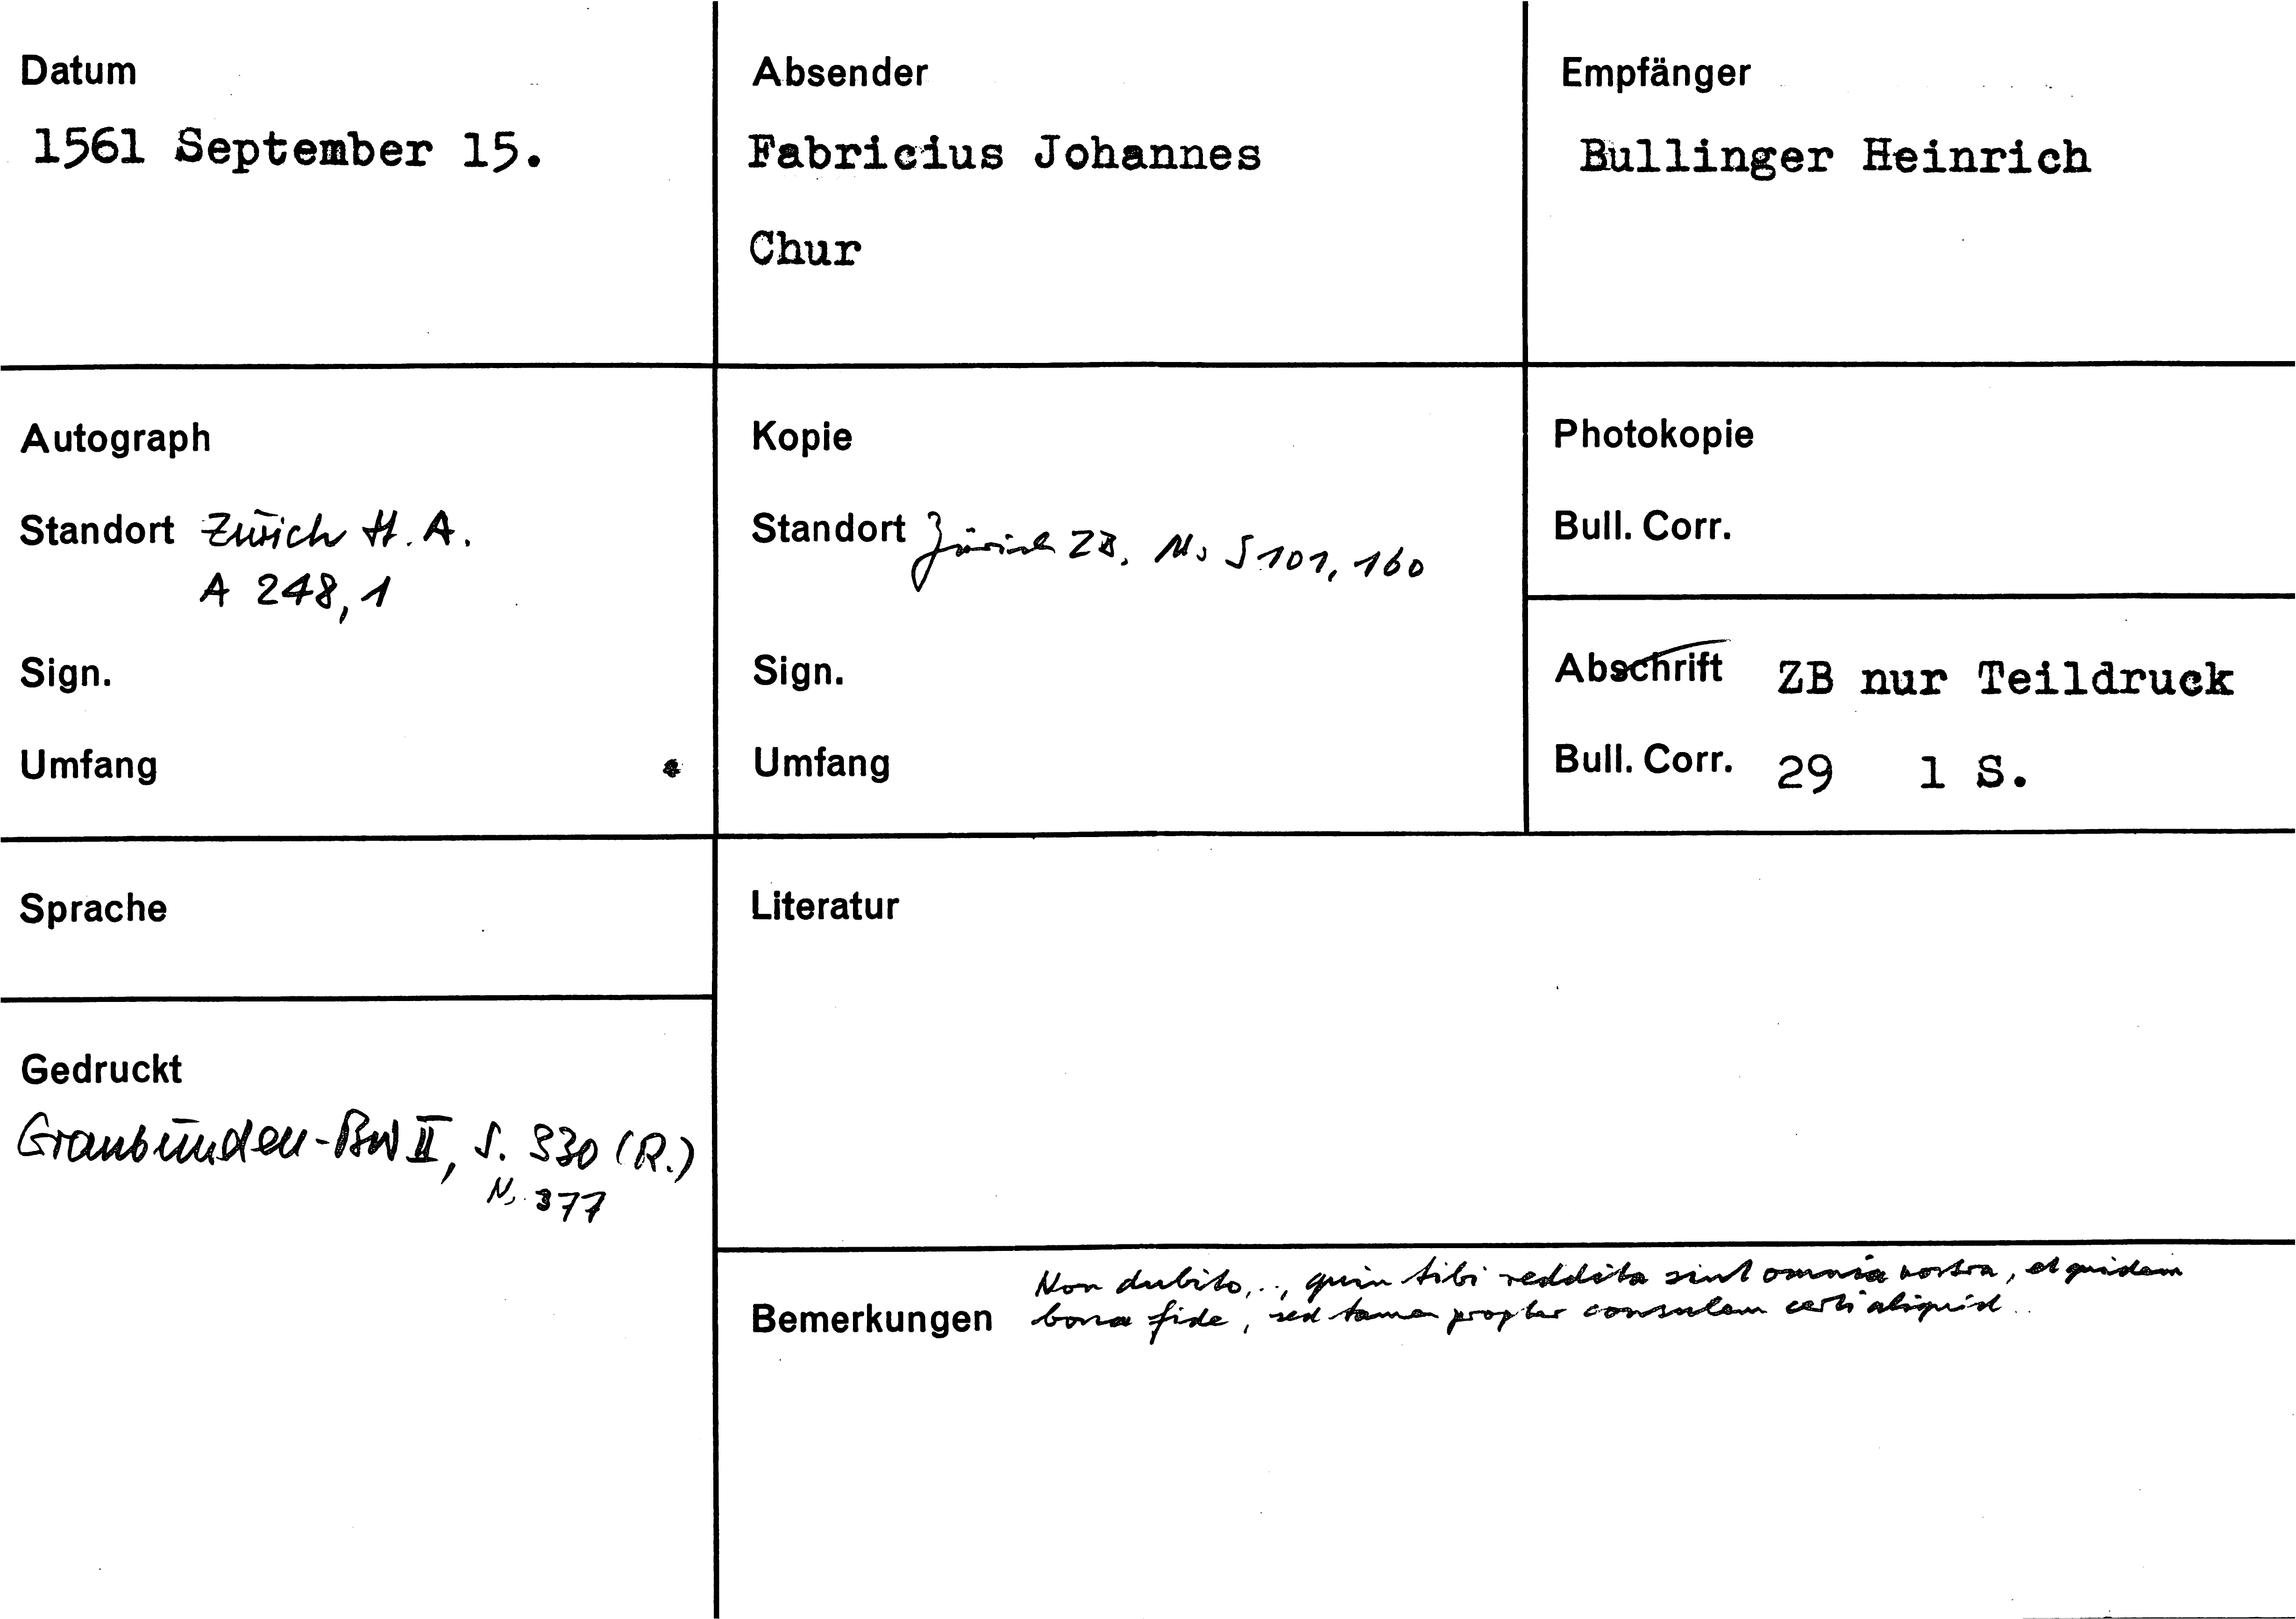 Datum
1561 September 15.
Absender
Fabricius Johannes
Chur
Empfänger
Bullinger Heinrich
Autograph
Standort Zürich St. A.
A 248, 1
Sign.
Umfang
Kopie
Standort Zürich ZB. Ms S 101, 160
Sign.
Umfang
Photokopie
Bull. Corr.
Abschrift ZB nur Teildruck
Bull. Corr. 29 1 S.
Sprache
Gedruckt
Graubünden-BW II, S. 330 (R.)
N. 377
Literatur
Bemerkungen
Non dubito,.., quin tibi reddita sint omnia nostra, et quidem
bona fide, sed tamen propter consulem certi aliquid..